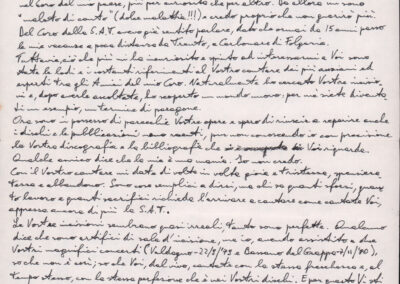 nel Coro del mio paese, più per curiosità che per altro. Da allora mi sono
"malato di canto" (dolce malattia!!!) e credo proprio che non guarirò più.
Del Coro della S.A.T. avevo già sentito parlare, dato che ormai da 15 anni passo
le mie vacanze a poca distanza da Trento, a Carbonare di Folgaria.
Tuttavia, ciò che più mi ha incuriosito e spinto ad interessarmi a Voi sono
state le lodi e i continui riferimenti al Vostro cantare dei più anziani ed
esperti tra gli Amici del mio Coro. Naturalmente ho cercato Vostre incisio-
ni e, dopo averle ascoltate, ho scoperto un mondo nuovo, per me siete diventa-
ti un esempio, un termine di paragone.
Ora sono in possesso di parecchie Vostre opere e spero di riuscire a reperire anche
i dischi e le pubblicazioni meno recenti, pur non conoscendo io con precisione
la Vostra discografia e la bibliografia che Vi riguarda.
Qualche amico dice che la mia è una mania. Io non credo.
Con il Vostro cantare mi date di volta in volta gioia e tristezza, speranza,
terrore e abbandono. Sono cose semplici a dirsi, ma chi sa quanti sforzi, quan-
to lavoro e quanti sacrifici richieda l'arrivare a cantare come cantate Voi,
apprezza ancora di più la S.A.T..
Le Vostre incisioni sembrano quasi irreali, tanto sono perfette. Qualcuno
dice che sono artifici di sala d'incisione, ma io, avendo assistito a due
Vostri magnifici concerti (Valdagno-22/9/79 e Bassano del Grappa-7/11/80),
so che non è così; so che Voi, dal vivo, cantate con la stessa freschezza e, al
tempo stesso, con la stessa perfezione che è nei Vostri dischi. E per questo Vi sti